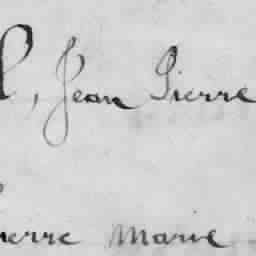 , Jean Pierre
ierre Marie